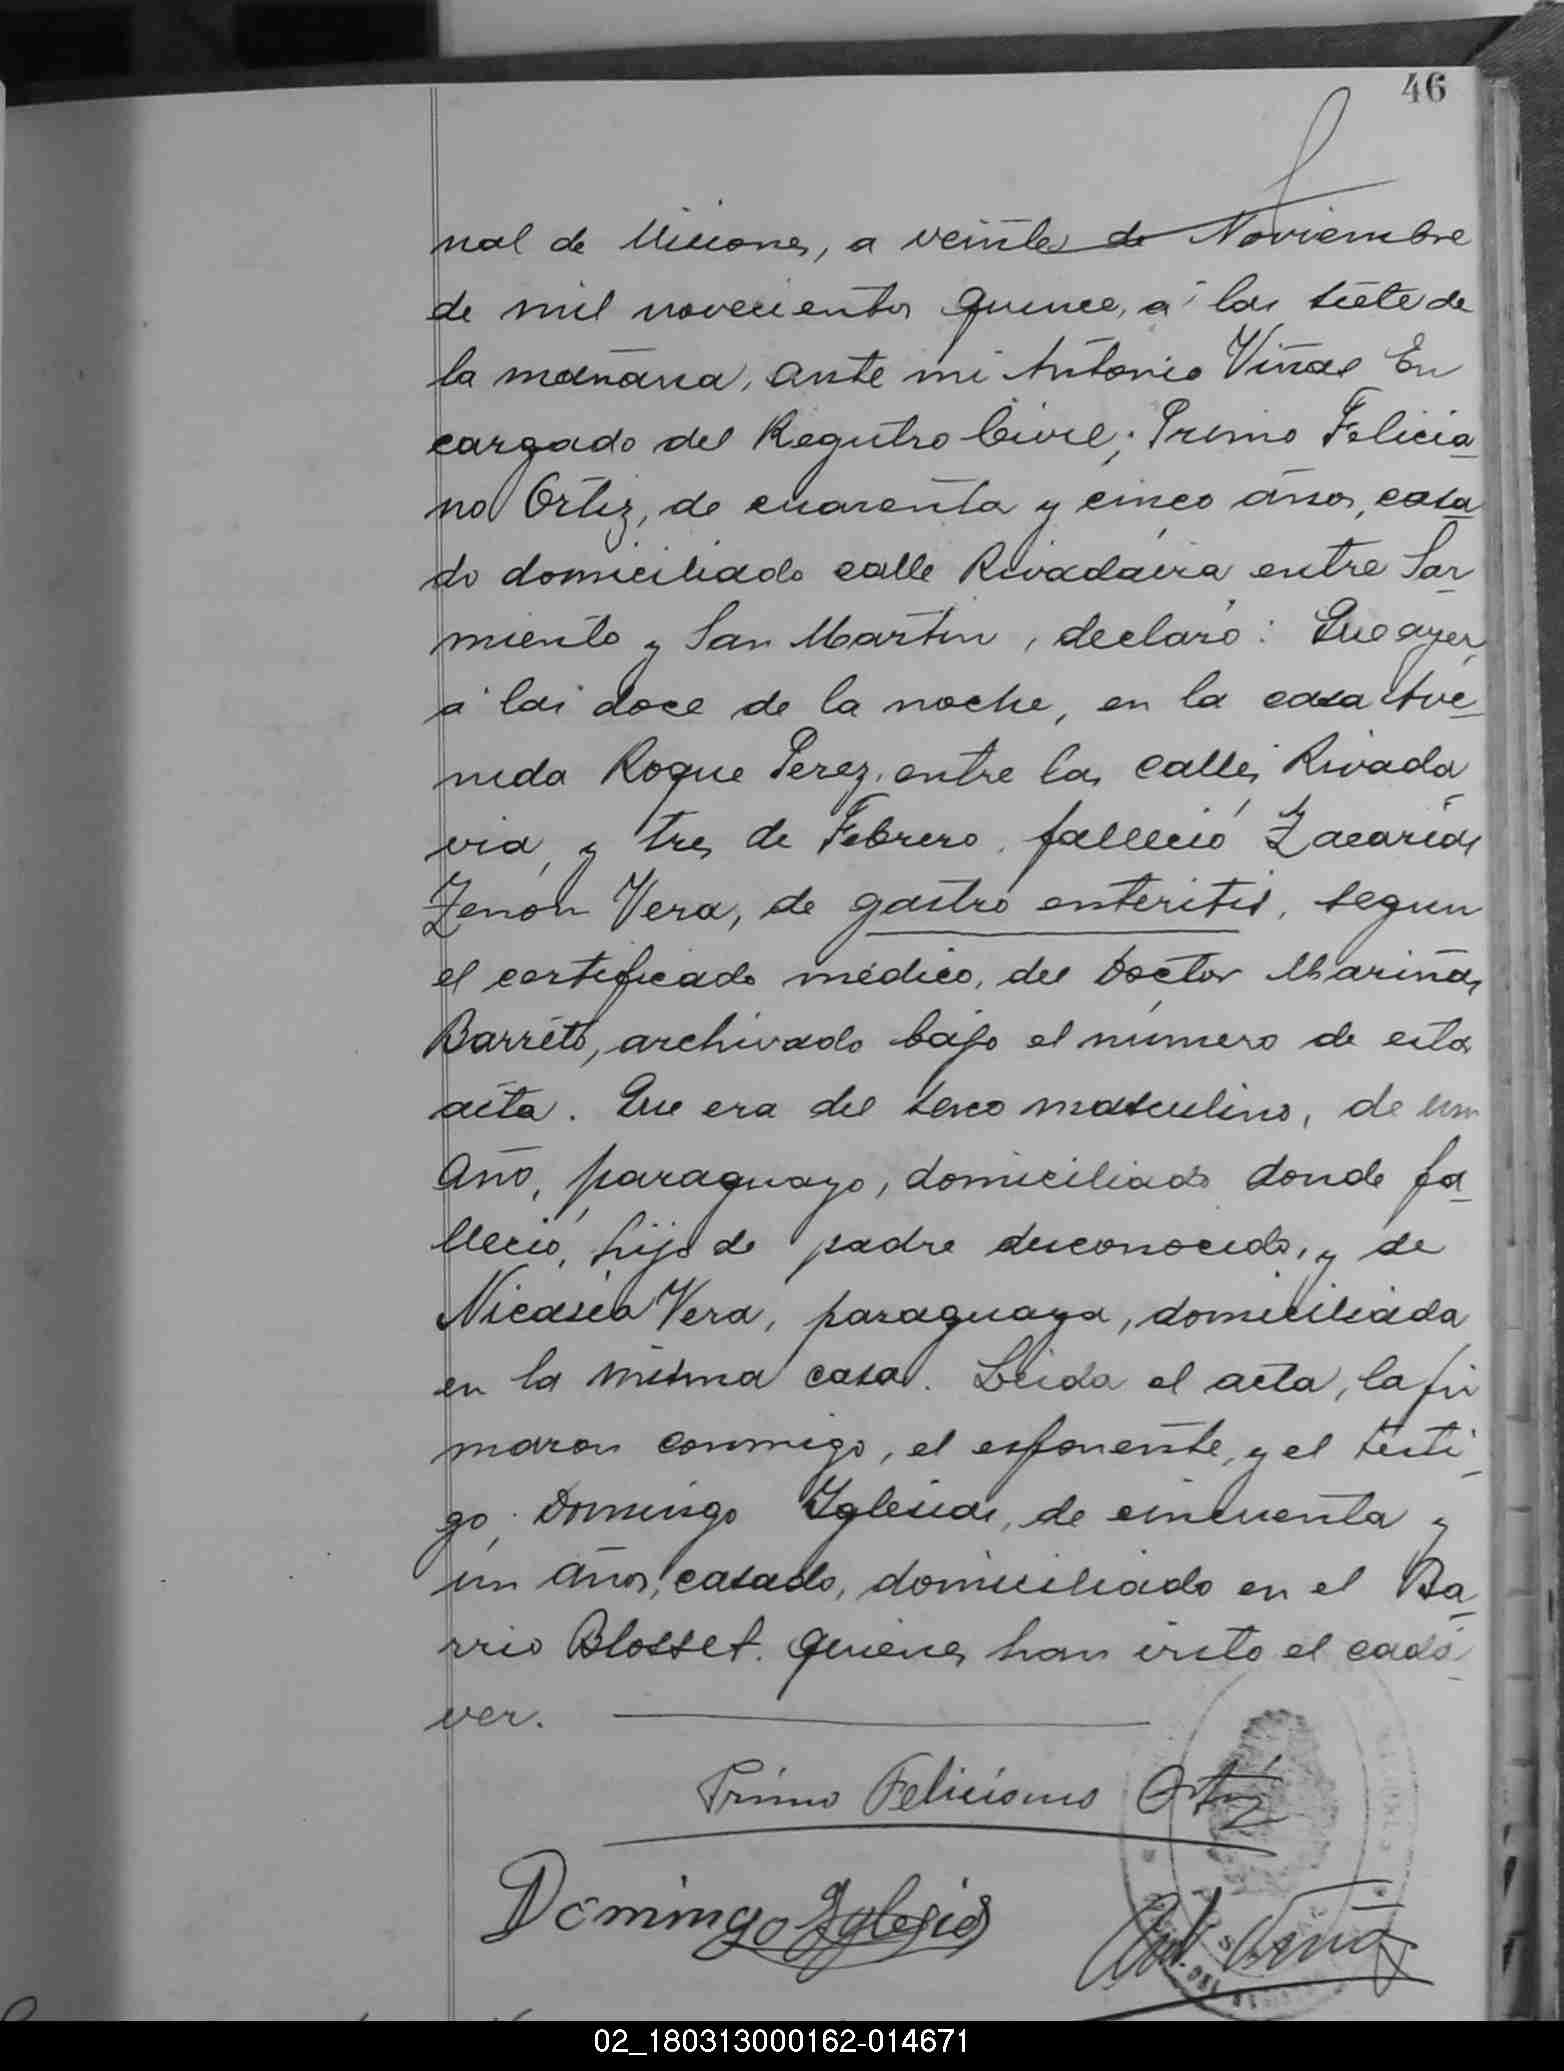 46
nal de Misiones, a veinte de Noviembre
de mil novecientos quince, á las siete de
la mañana, ante mi Antonio Viñas En
cargado del Registro Civil; Primo Felicia-
no Ortiz, de cuarenta y cinco años, casa-
do domiciliado calle Rivadavia entre Sar-
miento y San Martin, declaró: Que ayer,
á las doce de la noche, en la casa Ave-
nida Roque Perez, entre las calles Rivada-
via, y tres de Febrero, falleció Zacarías
Zenón Vera, de gastro enteritis, segun
el certificado médico, del Doctor Mariñas
Barreto, archivado bajo el número de esta
acta. Que era del sexo masculino, de un
año, paraguayo, domiciliado donde fa-
lleció, hijo de padre desconocido, y de
Nicasia Vera, paraguaya, domiciliada
en la misma casa. Leida el acta, la fir
maron conmigo, el esponente, y el testi-
go, Domingo Iglesias, de cincuenta y
un años, casado, domiciliado en el Ba-
rrio Blosset. quienes han visto el cadá-
ver.
Primo Feliciano Ortiz
Domingo Iglesias
Ant Viñas
02_180313000162-014671